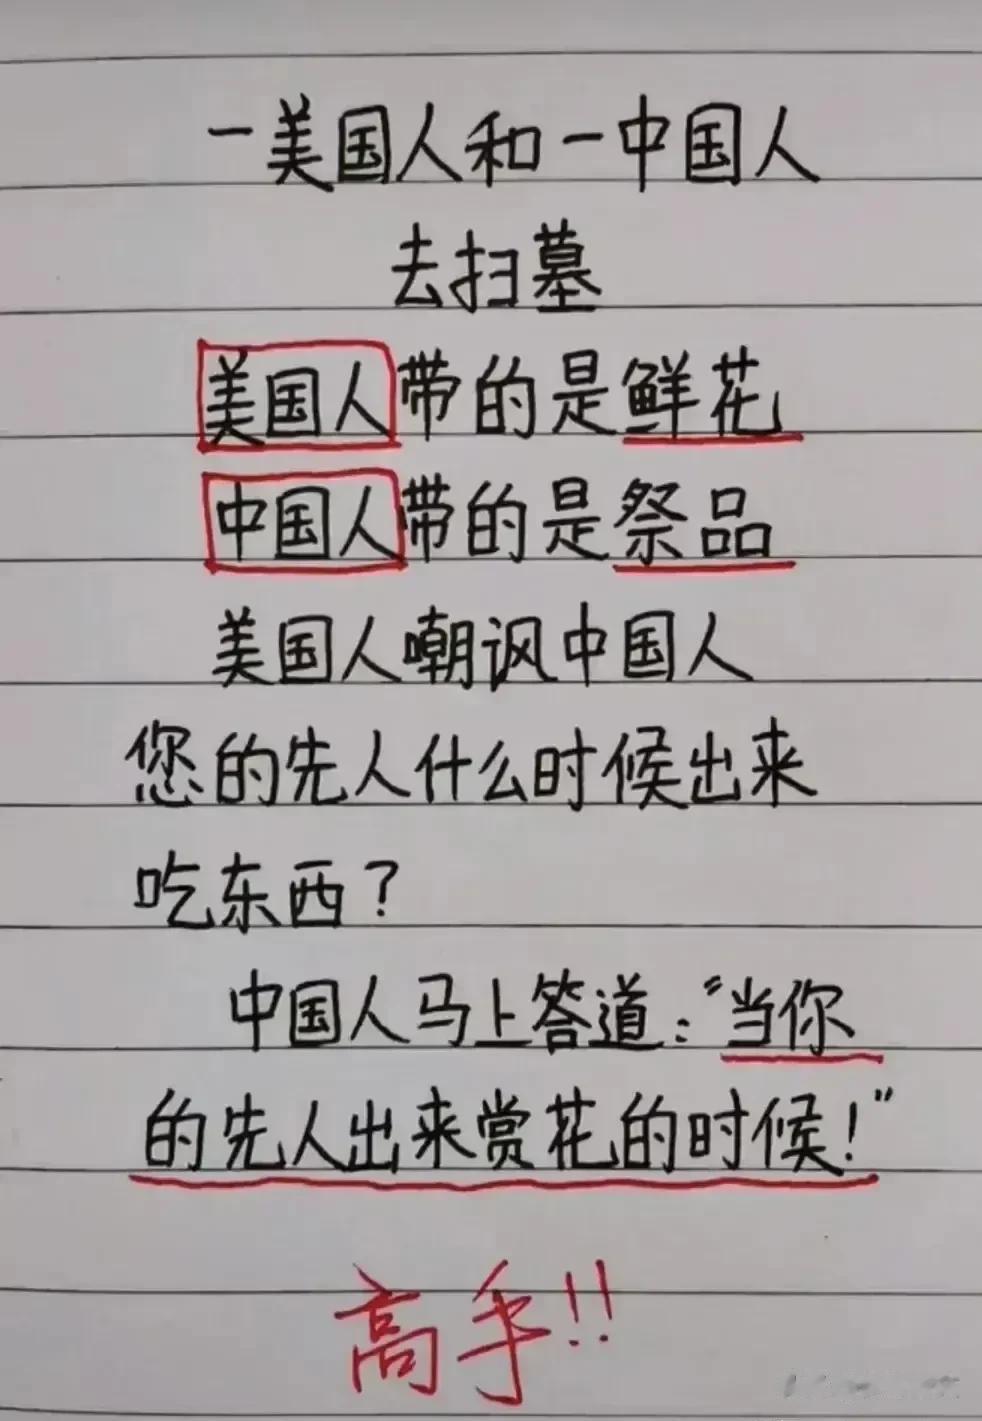 一美国人和一中国人
去扫墓
美国人带的是鲜花
中国人带的是祭品
美国人嘲讽中国人
您的先人什么时候出来
吃东西？
中国人马上答道：“当你
的先人出来赏花的时候！”
高手！！